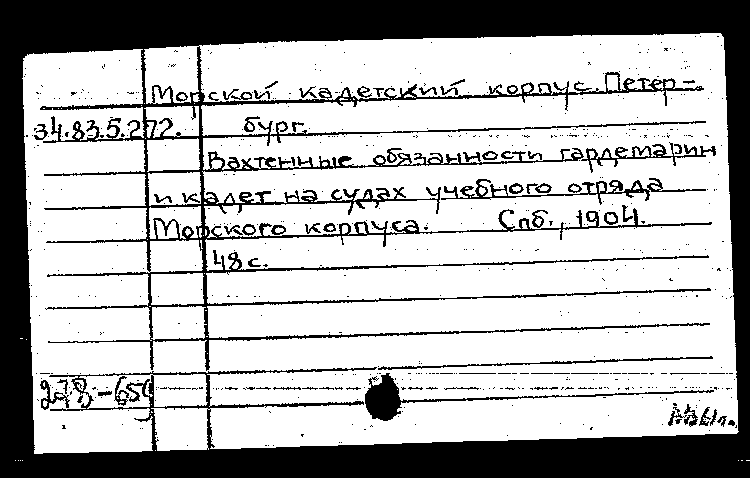 Морской кадетский корпус. Петер-
34.83.5.272. бург.
Вахтенные обязанности гардемарин
и кадет на судах учебного отряда
Морского корпуса. Спб., 1904.
48 с.